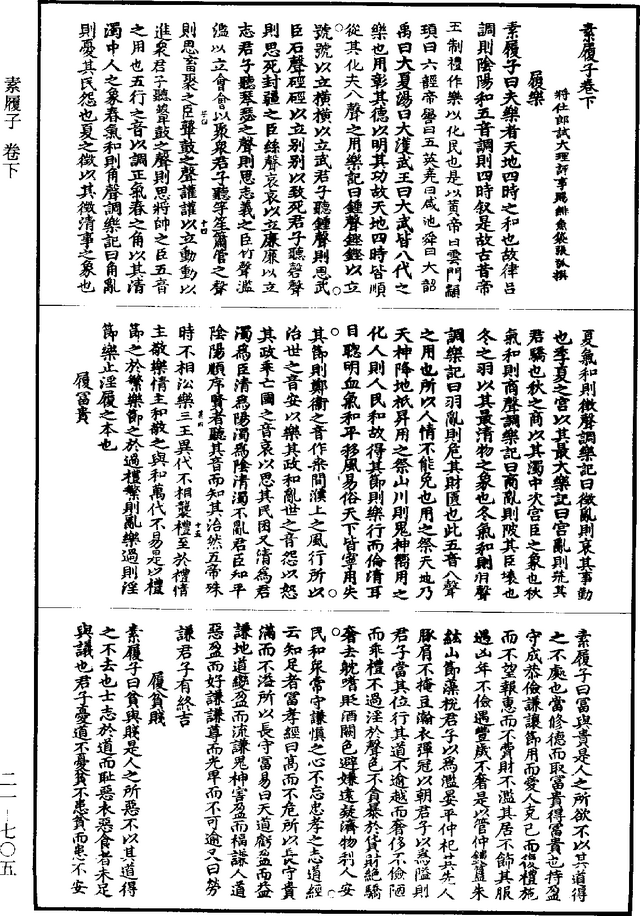 素履子卷下
將仕郎試大理評事賜緋魚袋張弧撰
履樂
素履子曰夫樂者天地四時之和也故律呂
調則陰陽和五音調則四時叙是故古昔帝
王制禮作樂以化民也是以黄帝曰雲門顓
頊曰六䪫帝嚳曰五英堯曰咸池舜曰大韶
禹曰大夏湯曰大濩武王曰大武皆八代之
樂也用彰其德以明其功故天地四時皆順
從其化夫八聲之用樂記曰鍾聲鏗鏗以立
號號以立横横以立武君子聽鍾聲則思武
臣石聲硜硜以立别别以致死君子聽磬聲
則思死封疆之臣絲聲哀哀以立廉廉以立
志君子聽琴瑟之聲則思志義之臣竹聲濫
濫以立會會以聚衆君子聽竽笙簫管之聲
十四
則思畜聚之臣鼙鼓之聲讙讙以立動動以
進衆君子聽鼙鼓之聲則思將帥之臣五音
之用也五行之音以調正氣春之角以其清
濁中人之象春氣和則角聲調樂記曰角亂
則憂其民怨也夏之徵以其徵清事之象也
夏氣和則徵聲調樂記曰徵亂則哀其事勤
也季夏之宫以其最大樂記曰宫亂則荒其
君驕也秋之商以其濁中次宫臣之象也秋
氣和則商聲調樂記曰商亂則陂其臣壞也
冬之羽以其最清物之象也冬氣和則羽聲
調樂記曰羽亂則危其財匱也此五音八聲
之用也所以人情不能免也用之祭天地乃
天神降地祇昇用之祭山川則鬼神饗用之
化人則人民和故得其節則樂行而倫清耳
目聰明血氣和平移風易俗天下皆寧用失
其節則鄭衛之音作桑間濮上之風行所以
治世之音安以樂其政和亂世之音怨以怒
其政乖亡國之音哀以思其民困又清爲君
濁爲臣清爲陽濁爲陰清濁不亂君臣和平
陰陽順序賢者聽其音而知其治然五帝殊
十五
時不相沿樂三王異代不相襲禮至於禮情
主敬樂情主和敬之與和萬代不易是以禮
節之於繁樂節之於過禮繁則亂樂過則淫
節樂止淫履之本也
履富貴
素履子曰富與貴是人之所欲不以其道得
之不處也當修德而取富貴得富貴也持盈
守成恭儉謙讓節用而愛人克己而復禮施
而不望報惠而不費財不濫其居不節其服
遇凶年不儉遇豐歲不奢是以管仲鏤簋朱
紘山節藻梲君子以爲濫晏平仲祀其先人
豚肩不掩豆澣衣彈冠以朝君子以爲隘則
君子當其位行其道不逾越而奢侈不儉陋
而乖禮不過淫於聲色不貪暴於貨財絕驕
奢去躭嗜貶酒闕色避嫌遠疑濟物利人安
民和衆常守謙慎之心不忘忠孝之志道經
云知足者富孝經曰高而不危所以長守貴
滿而不溢所以長守富易曰天道虧盈而益
謙地道變盈而流謙鬼神害盈而福謙人道
惡盈而好謙謙尊而光卑而不可逾又曰勞
謙君子有終吉
履貧賤
素履子曰貧與賤是人之所惡不以其道得
之不去也士志於道而恥惡衣惡食者未足
與議也君子憂道不憂貧不患貧而患不安
素履子 卷下
二一—七〇五